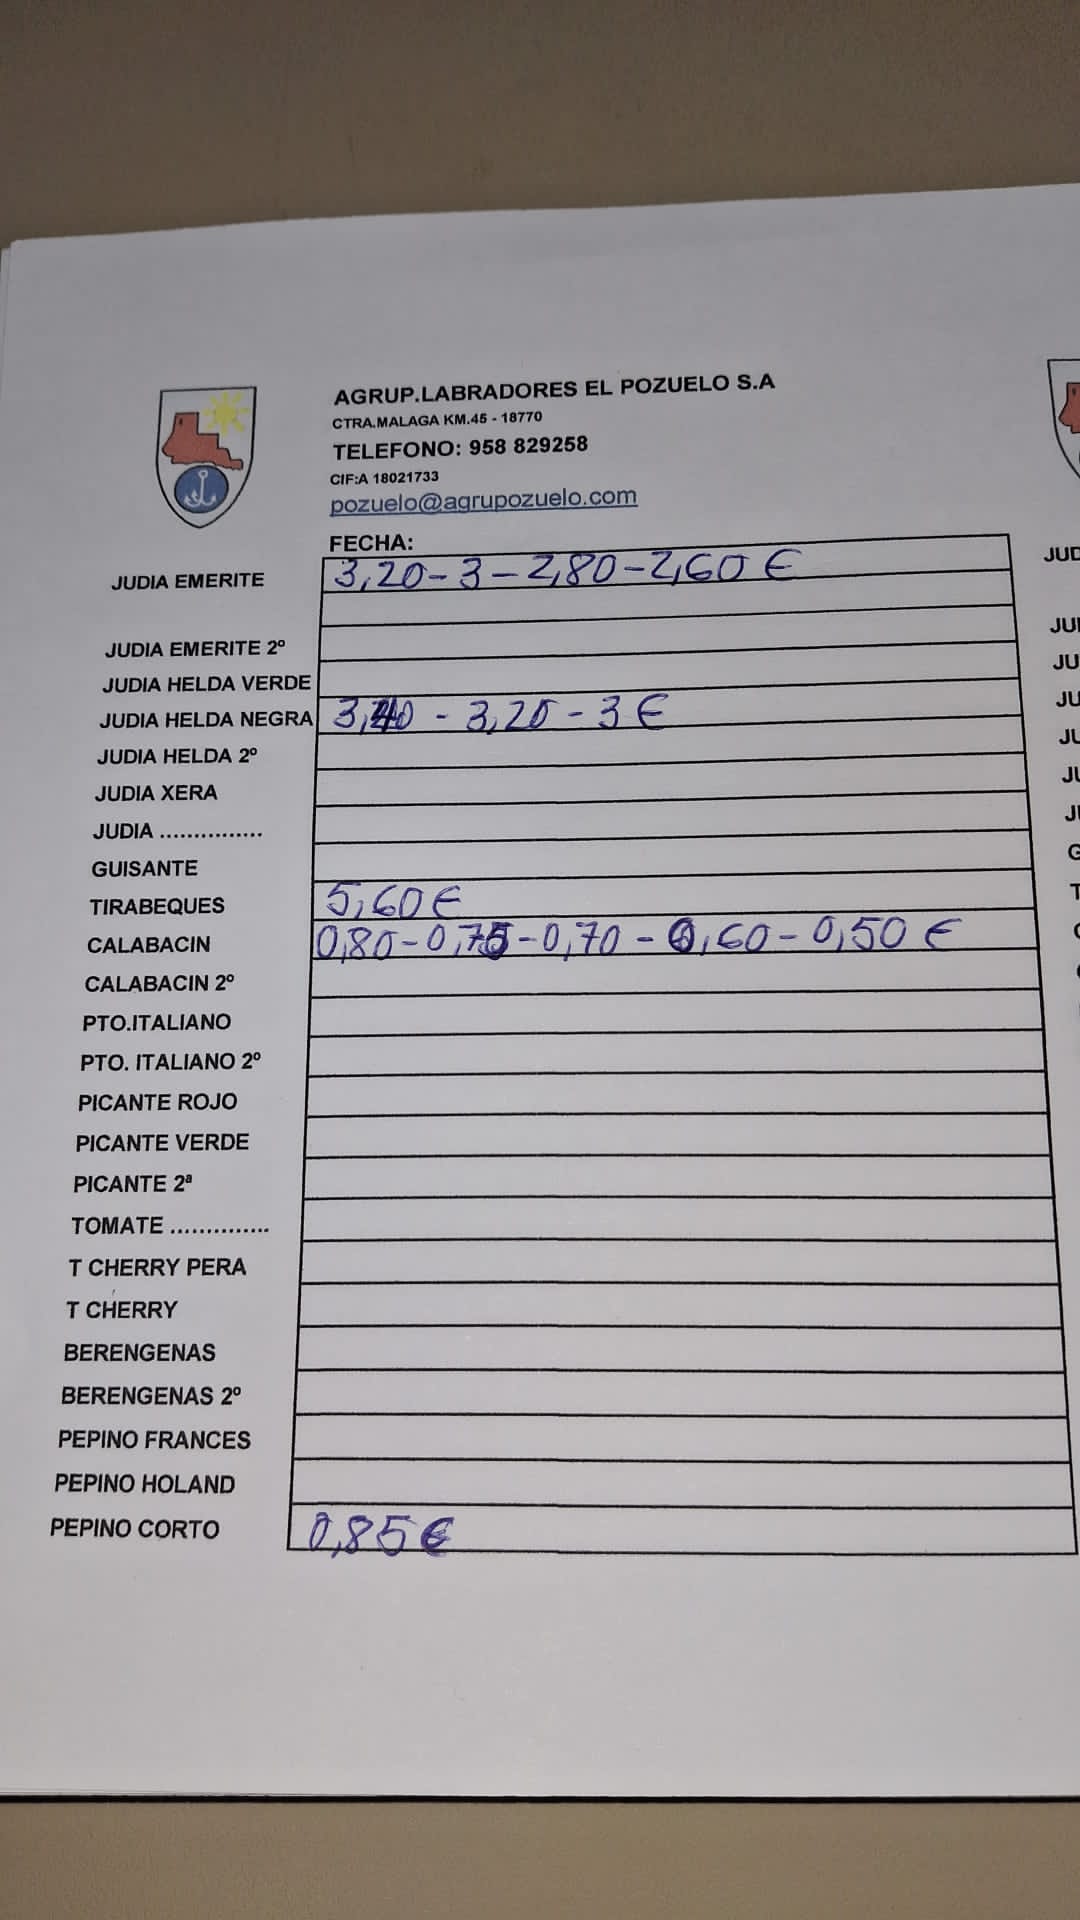 AGRUP.LABRADORES EL POZUELO S.A
CTRA.MALAGA KM.45 - 18770
TELEFONO: 958 829258
CIF:A 18021733
pozuelo@agrupozuelo.com
FECHA:
JUDIA EMERITE 3,20-3-2,80-2,60 €
JUDIA EMERITE 2º
JUDIA HELDA VERDE
JUDIA HELDA NEGRA 3,40 - 3,20 - 3 €
JUDIA HELDA 2º
JUDIA XERA
JUDIA ...............
GUISANTE
TIRABEQUES 5,60 €
CALABACIN 0,80-0,75-0,70-0,60-0,50 €
CALABACIN 2º
PTO.ITALIANO
PTO. ITALIANO 2º
PICANTE ROJO
PICANTE VERDE
PICANTE 2ª
TOMATE ..............
T CHERRY PERA
T CHERRY
BERENGENAS
BERENGENAS 2º
PEPINO FRANCES
PEPINO HOLAND
PEPINO CORTO 0,85 €